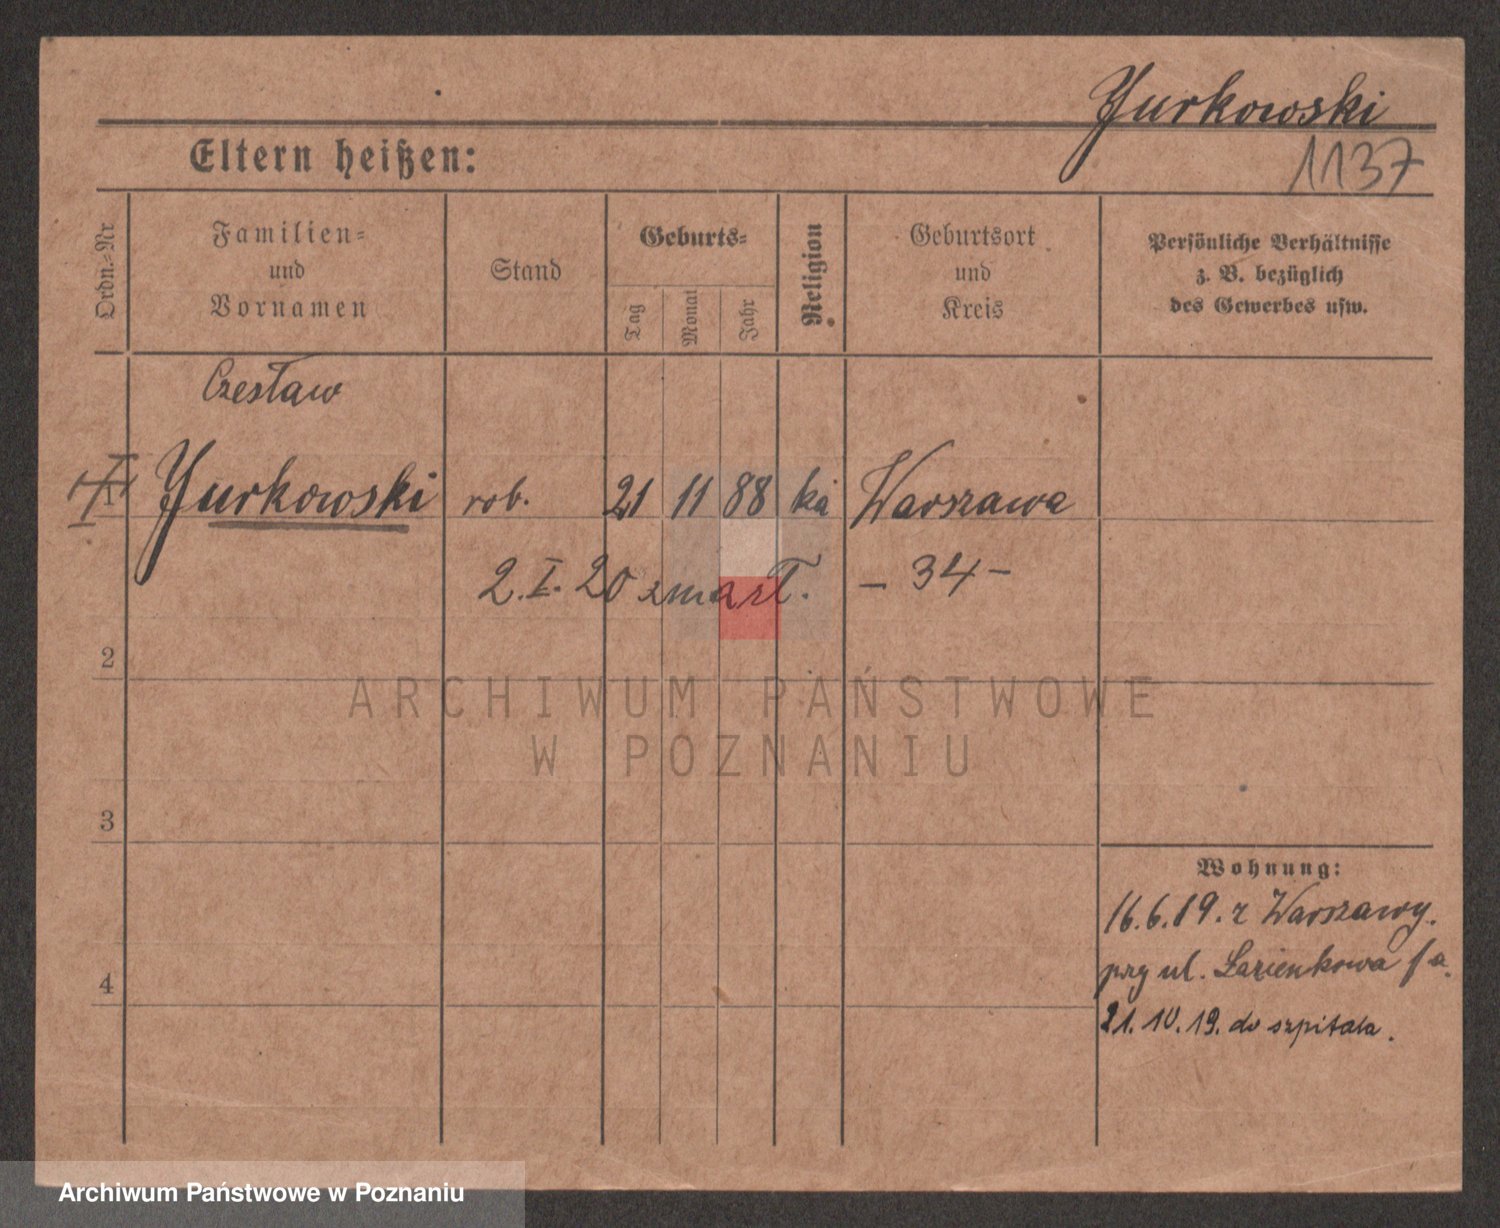 Jurkowski
1137
Eltern heißen:
Ordn.-Nr
Familien-
und
Vornamen
Stand
Geburts-
Tag
Monat
Jahr
Religion
Geburtsort
und
Kreis
Persönliche Verhältnisse
z. B. bezüglich
des Gewerbes usw.
Czesław
1 Jurkowski rob. 21 11 88 ka Warszawa
2. I. 20 zmarł. – 34 –
2
ARCHIWUM PAŃSTWOWE
W POZNANIU
3
Wohnung:
16.6.19. z Warszawy.
przy ul. Łazienkowa
4
21. 10. 19. do szpitala.
Archiwum Państwowe w Poznaniu